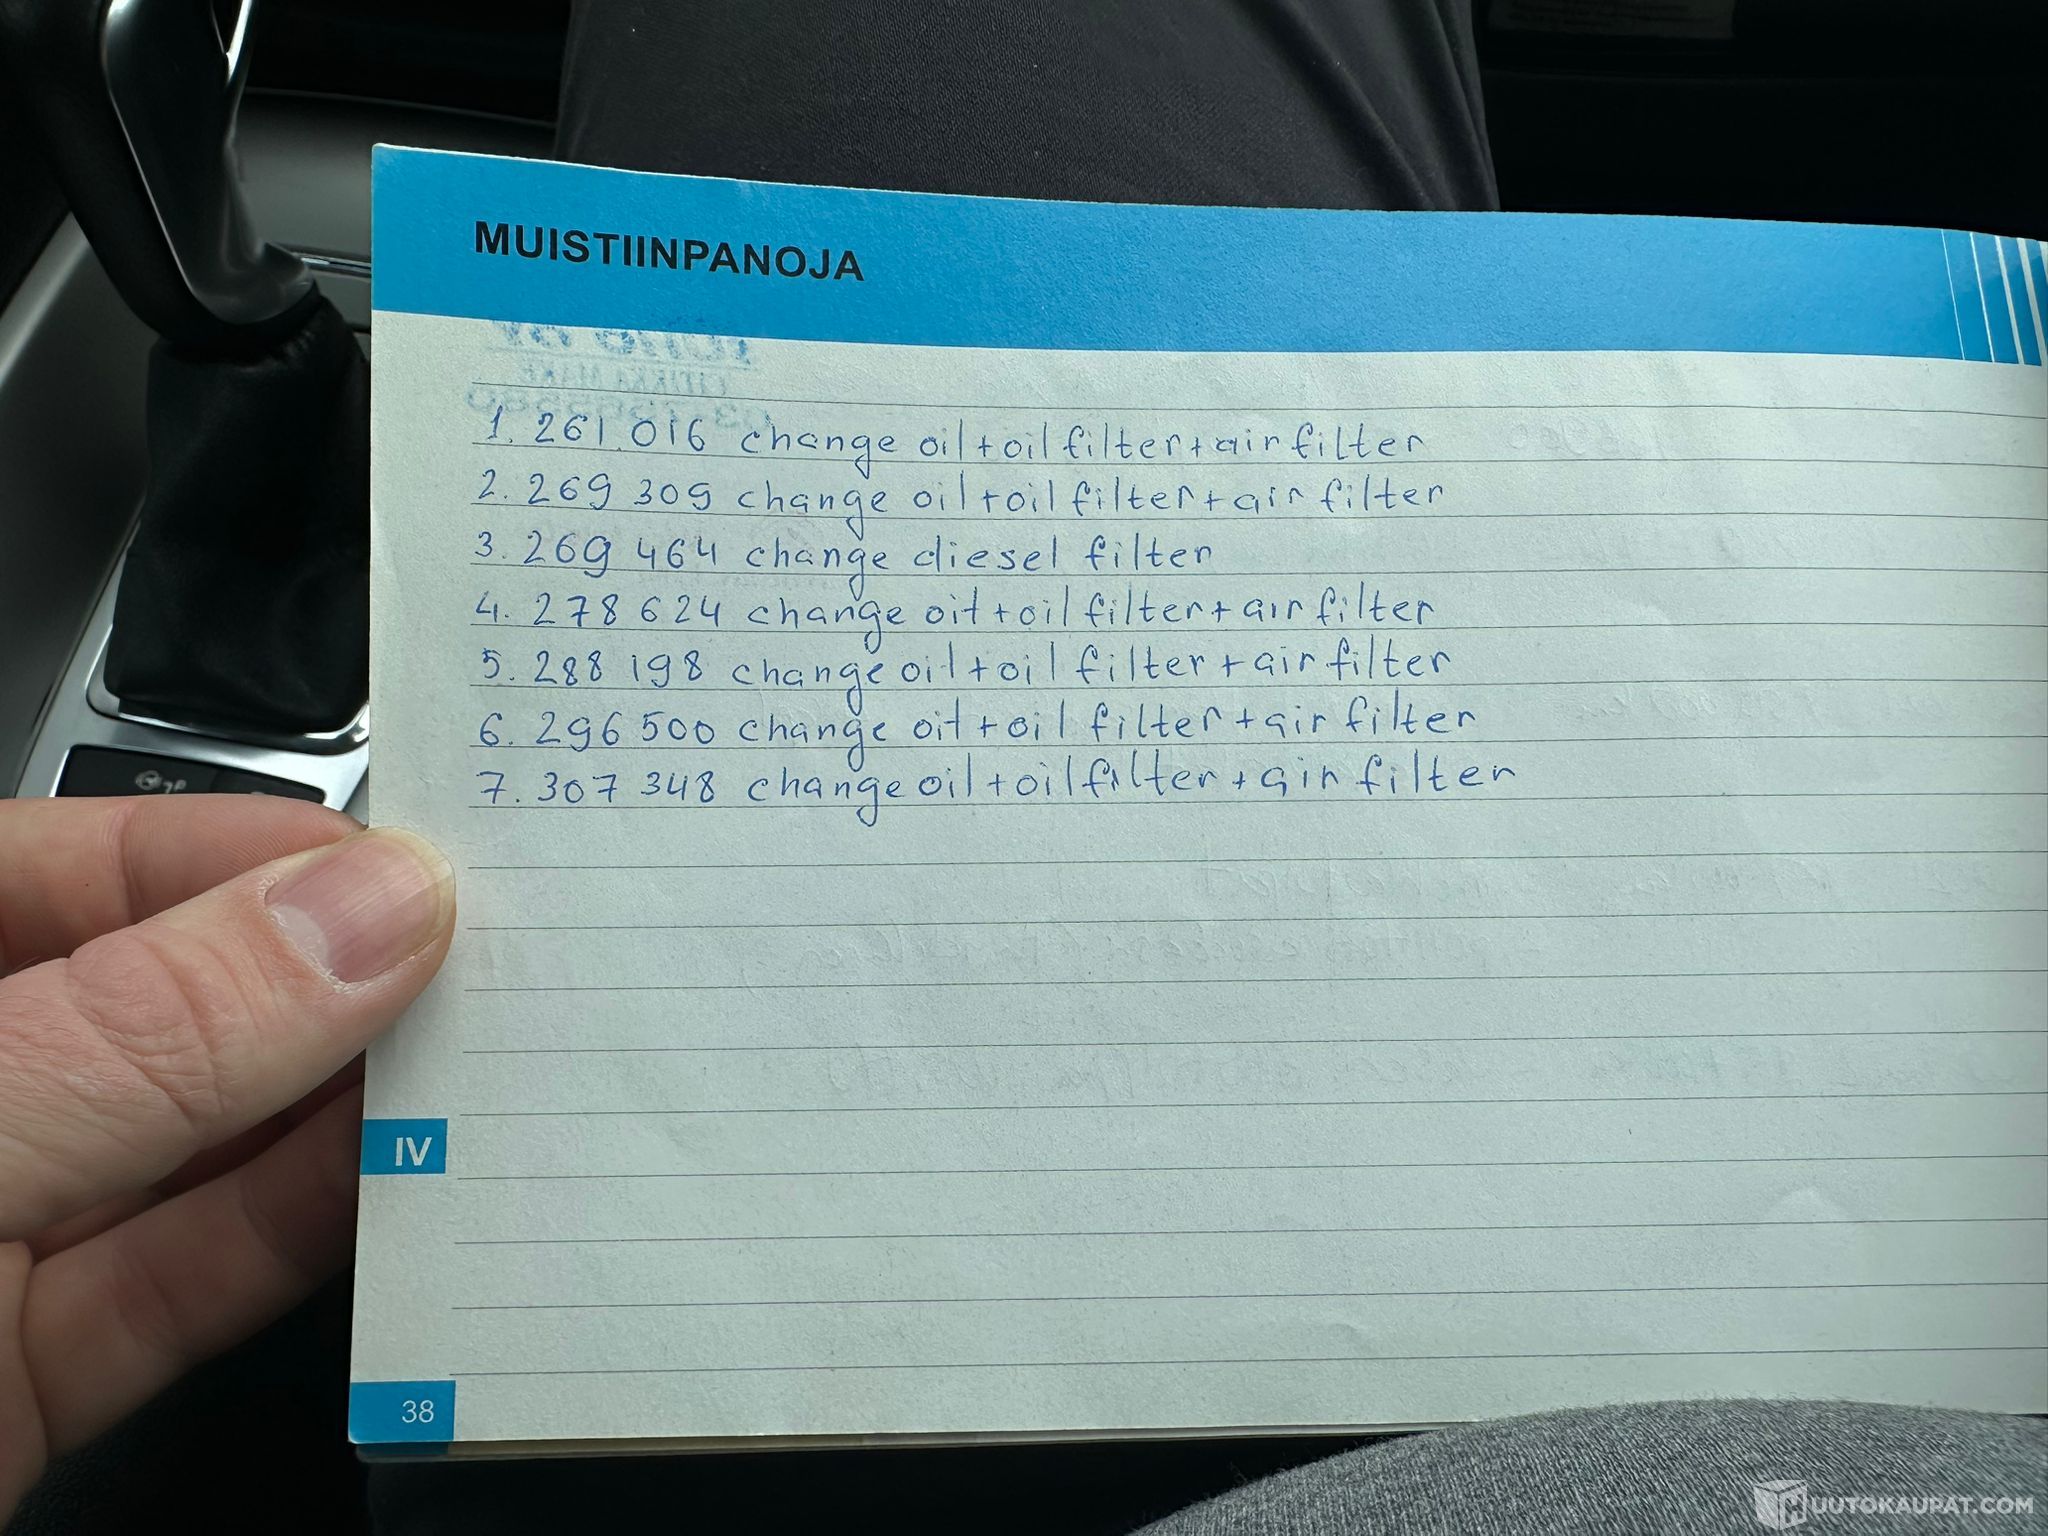 MUISTIINPANOJA
1. 261.016 change oil+oil filter+air filter
2. 269 309 change oil+oil filter+air filter
3. 269 464 change diesel filter
4. 278 624 change oil+oil filter+air filter
5. 288 198 change oil+oil filter+air filter
6. 296 500 change oil+oil filter+air filter
7. 307 348 change oil+oil filter+air filter
IV
38
UUTOKAUPAT.COM